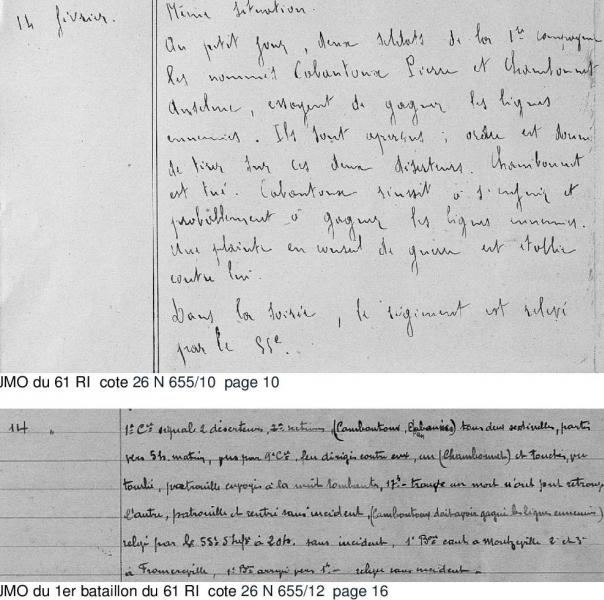 14 février.
Même situation.
Au petit jour, deux soldats de la 1re compagnie
les nommés Cabantoux Pierre et Chambonnet
Anselme, essayent de gagner les lignes
ennemies. Ils sont aperçus ; ordre est donné
de tirer sur ces deux déserteurs. Chambonnet
est tué. Cabantoux réussit à s'enfuir et
probablement à gagner les lignes ennemies.
Une plainte en conseil de guerre est établie
contre lui.
Dans la soirée, le régiment est relevé
par le 55e.
JMO du 61 RI cote 26 N 655/10 page 10
14 "
1e Cie signale 2 déserteurs, 2e section (Cambantoux, ) tous deux sentinelles, partis
vers 5h. matin, par 9e Cie, feu dirigés contre eux, un (Chambonnet) est touché,
tombé, patrouille envoyée à la nuit tombante, trouve un mort n'ont pu retrouver
l'autre, patrouille est rentrée sans incident, (Cambantoux doit avoir gagné les lignes ennemies)
relevé par le 55e à 20h. sans incident, 1e Bon cant a Montzéville 2 et 3
à Fromeréville, 1e Bon arrivé vers relève sans incident.
JMO du 1er bataillon du 61 RI cote 26 N 655/12 page 16